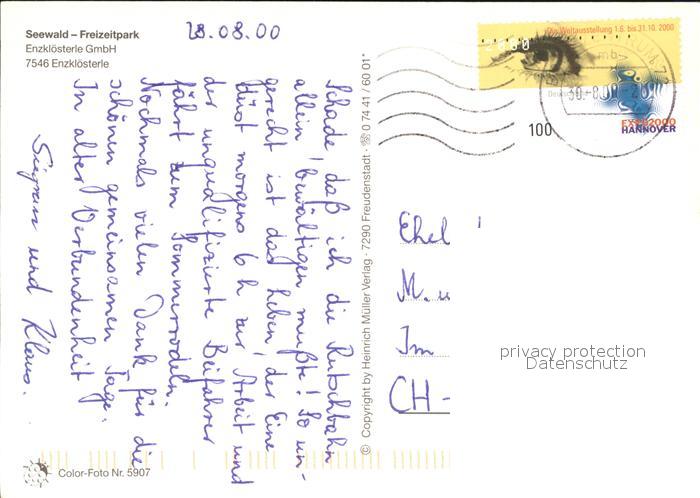 Seewald – Freizeitpark
Enzklösterle GmbH
7546 Enzklösterle
28.08.00
Schade, daß ich die Rutschbahn
allein bewältigen mußte! So un-
gerecht ist das Leben, der Eine
düst morgens 6 h zur Arbeit und
der unqualifizierte Beifahrer
fährt zum Sommerrodeln.
Nochmals vielen Dank für die
schönen gemeinsamen Tage.
In alter Verbundenheit
Sigrun und Klaus.
Color-Foto Nr. 5907
© Copyright by Heinrich Müller Verlag · 7290 Freudenstadt · ☏ 0 74 41 / 60 01*
Die Weltausstellung 1.6. bis 31.10. 2000
2000
30.-8.00
100
EXPO2000
HANNOVER
Ehel
M.u
Im
CH -
privacy protection
Datenschutz